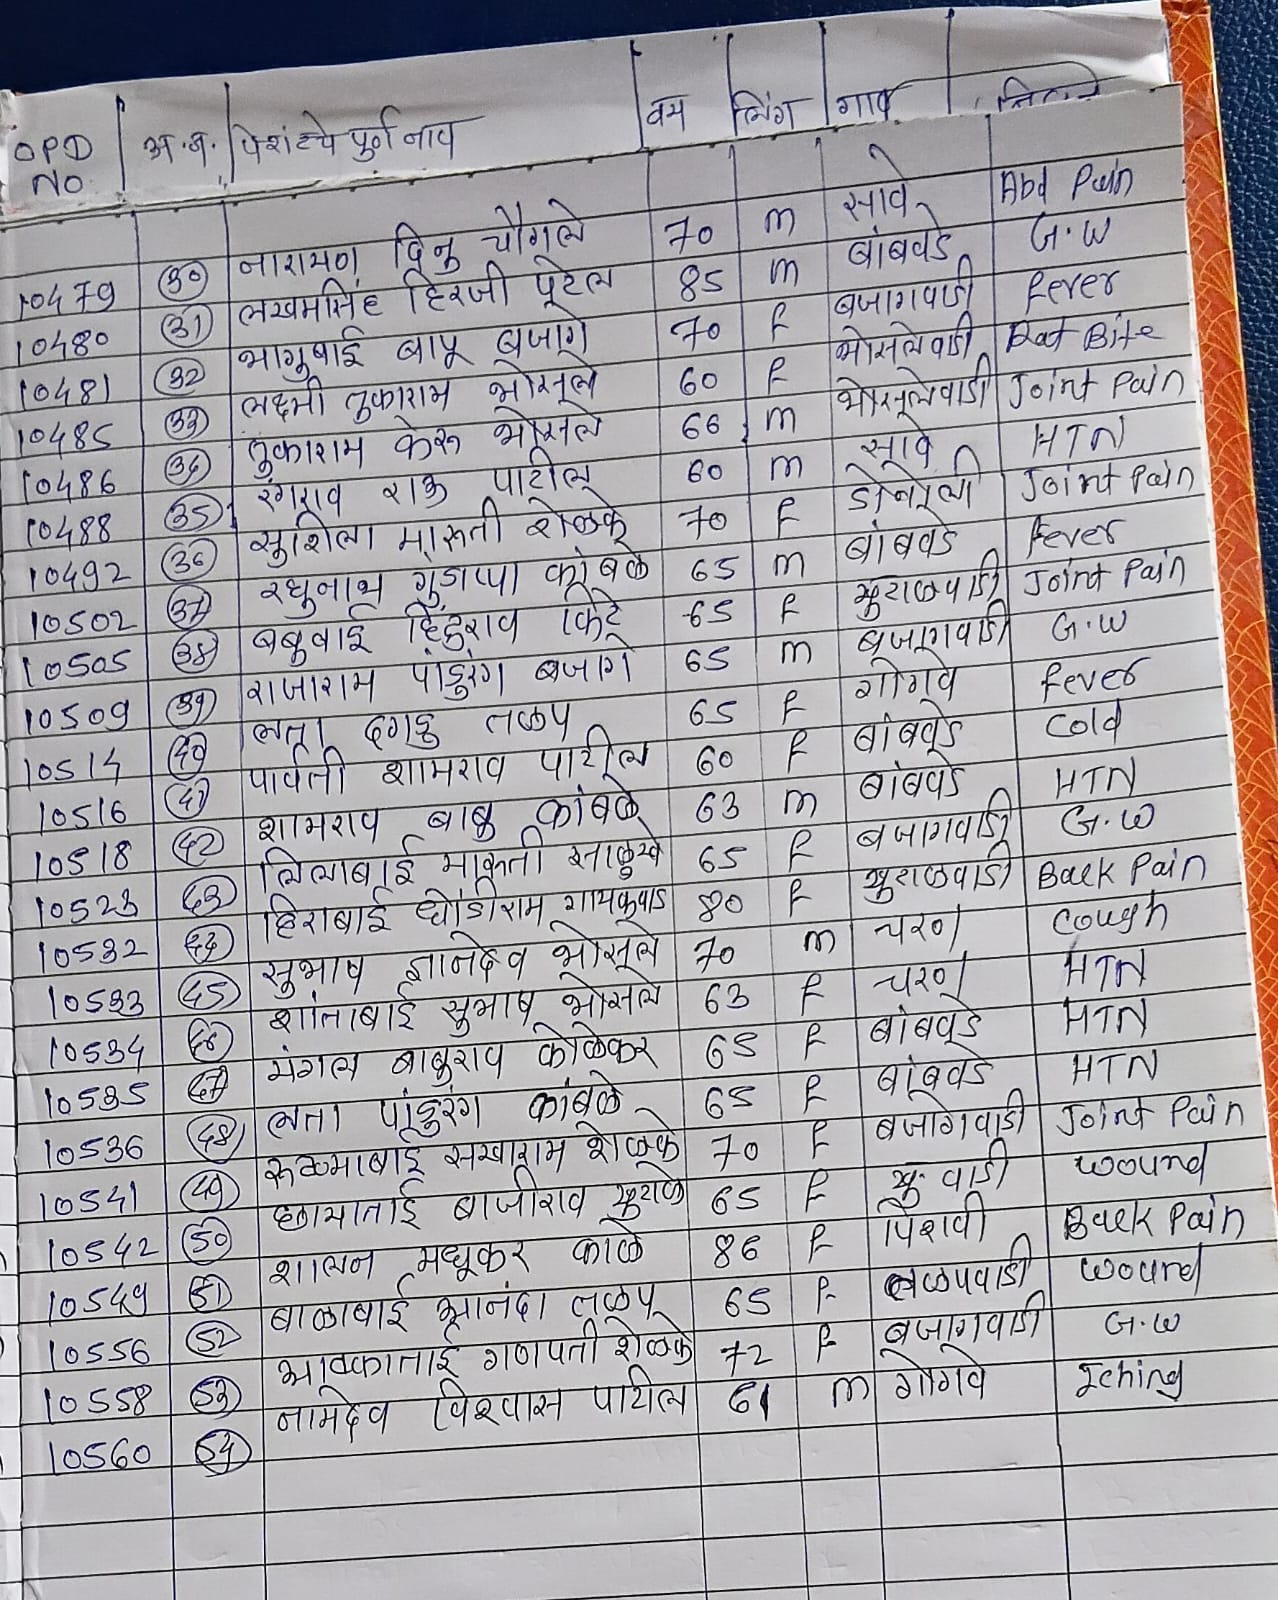 OPD NO. अ.न. पेशंटचे पुर्ण नाव वय लिंग गाव
10479 30 नारायण दिनु चौगले 70 m सावे Abd Pain
10480 31 लखमसिंह हिरजी पटेल 85 m बांबवडे G.W
10481 32 भागुबाई बापू बजागे 70 F बजागवाडी Fever
10485 33 लक्ष्मी तुकाराम भोसले 60 F भोसलेवाडी Rat Bite
10486 34 तुकाराम केरू भोसले 66 m भोसलेवाडी Joint Pain
10488 35 रंगराव राऊ पाटील 60 m सावे HTN
10492 36 सुशिला मारूती शेळके 70 F डोनोली Joint Pain
10502 37 रघुनाथ गुंडाप्पा कांबळे 65 m बांबवडे Fever
10505 38 बबुबाई हिंदुराव किटे 65 F खुटाळवाडी Joint Pain
10509 39 राजाराम पांडुरंग बजागे 65 m बजागवाडी G.W
10514 40 लता दगडु तळप 65 F गोगवे Fever
10516 41 पार्वती शामराव पाटील 60 F बांबवडे Cold
10518 42 शामराव बाबु कांबळे 63 m बांबवडे HTN
10523 43 लिलाबाई मारूती साळुंखे 65 F बजागवाडी G.W
10532 44 हिराबाई धोंडीराम गायकवाड 80 F खुटाळवाडी Back Pain
10533 45 सुभाष ज्ञानदेव भोसले 70 m चरण Cough
10534 46 शांताबाई सुभाष भोसले 63 F चरण HTN
10535 47 मंगल बाबुराव कोळेकर 65 F बांबवडे HTN
10536 48 लता पांडुरंग कांबळे 65 F बांबवडे HTN
10541 49 सखाराम शेळके 70 F बजागेवाडी Joint Pain
10542 50 छायाताई बाजीराव खुटाळे 65 F खु. वाडी wound
10549 51 शालन मधूकर काळे 86 F पिशवी Back Pain
10556 52 बाळाबाई आनंदा तळप 65 F तळपवाडी wound
10558 53 आक्काताई गणपती शेळके 72 F बजागवाडी G.W
10560 54 नामदेव विश्वास पाटील 61 m गोगवे Iching